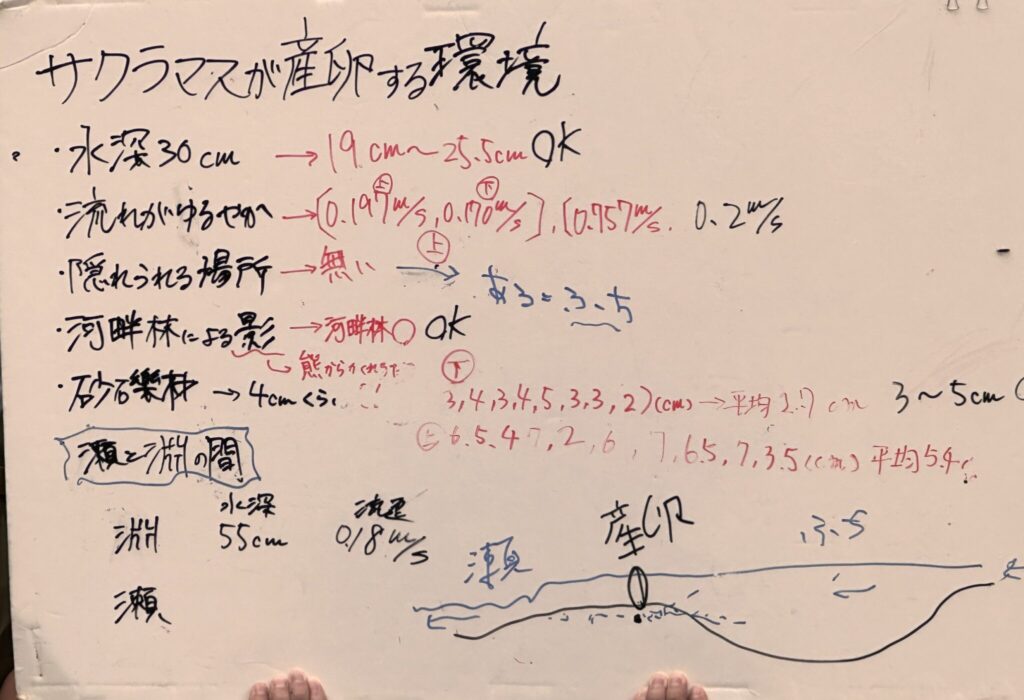 サクラマスが産卵する環境
・水深30cm →19cm〜25.5cm OK
・流れがゆるやか→[0.197m/s, 0.170m/s], [0.757m/s. 0.2m/s
上 下
・隠れられる場所→無い →
上
ある=ふち
・河畔林による影→河畔林○ OK
熊からかくれ
・砂石礫材→4cmくらい
下 3,4,3,4,5,3,3,2)(cm)→平均 cm 3〜5cm
上 6.5.4 7,2,6, 7,6.5,7,3.5(cm)平均5.4
瀬と淵の間
水深 流速
淵 55cm 0.18m/s
瀬
瀬 産卵 ふち